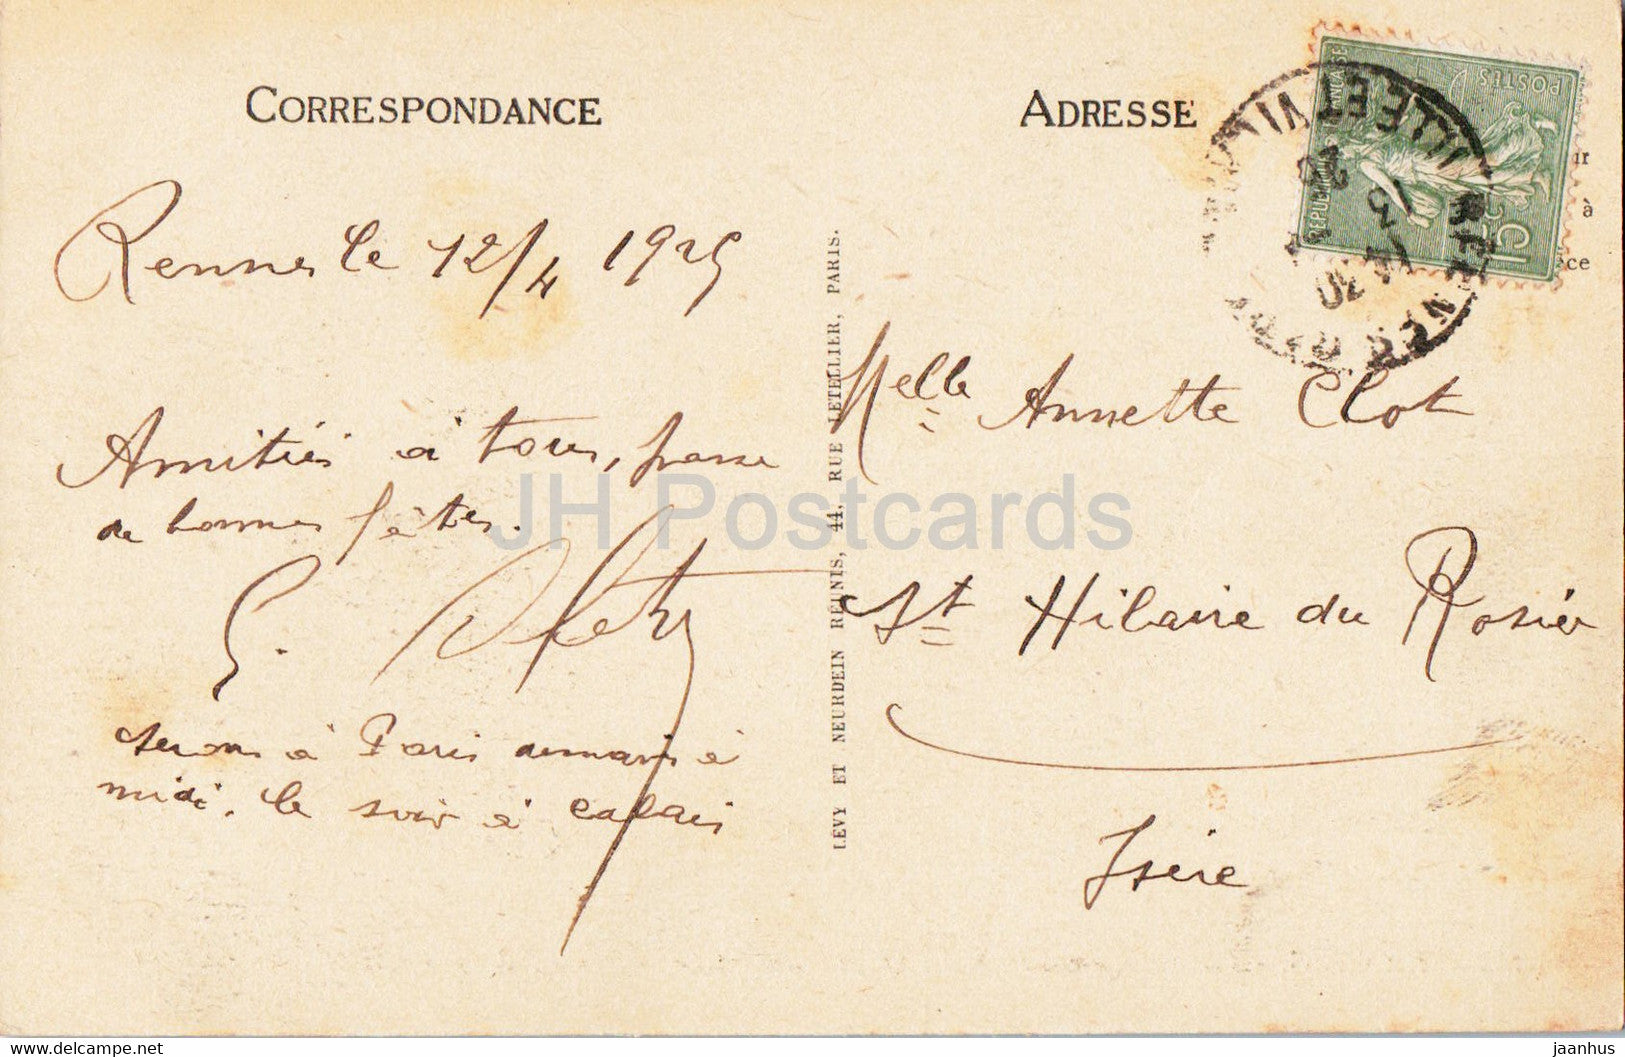 CORRESPONDANCE
Rennes le 12/4 1925
Amitiés à tous, passe
de bonnes fêtes.
G.
serons à Paris demain à
midi. le soir à calais
LEVY ET NEURDEIN RÉUNIS, 44, RUE LETELLIER, PARIS.
ADRESSE
POSTES
REPUBLIQUE FRANÇAISE
ur
à
èce
Melle Annette Clot
St Hilaire du Rosier
Isère
JH Postcards
www.delcampe.net
jaanhus